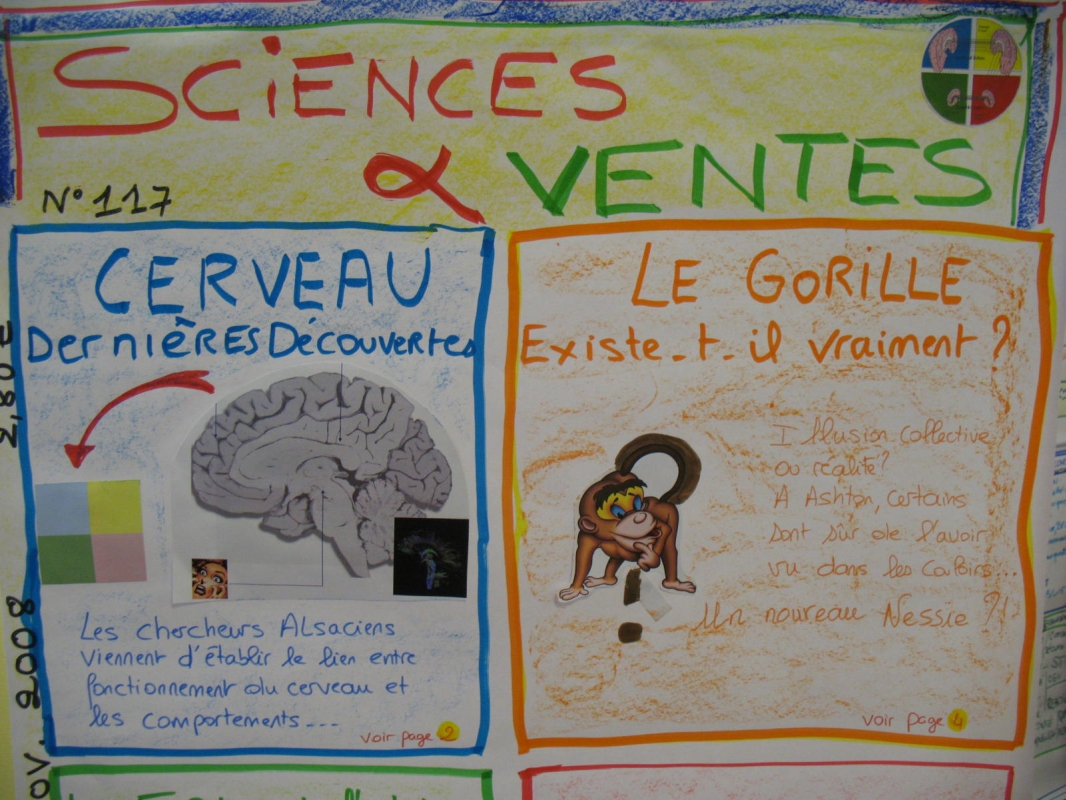 SCIENCES
& VENTES
N° 117
2,80 €
NOV. 2008
CERVEAU
DERNIÈRES DÉCOUVERTES
Les chercheurs Alsaciens
viennent d'établir le lien entre
fonctionnement du cerveau et
les comportements...
voir page 2
LE GORILLE
Existe-t-il vraiment ?
Illusion collective
ou réalité?
A Ashton, certains
sont sûr de l'avoir
vu dans les couloirs...
Un nouveau Nessie ?!
voir page 4